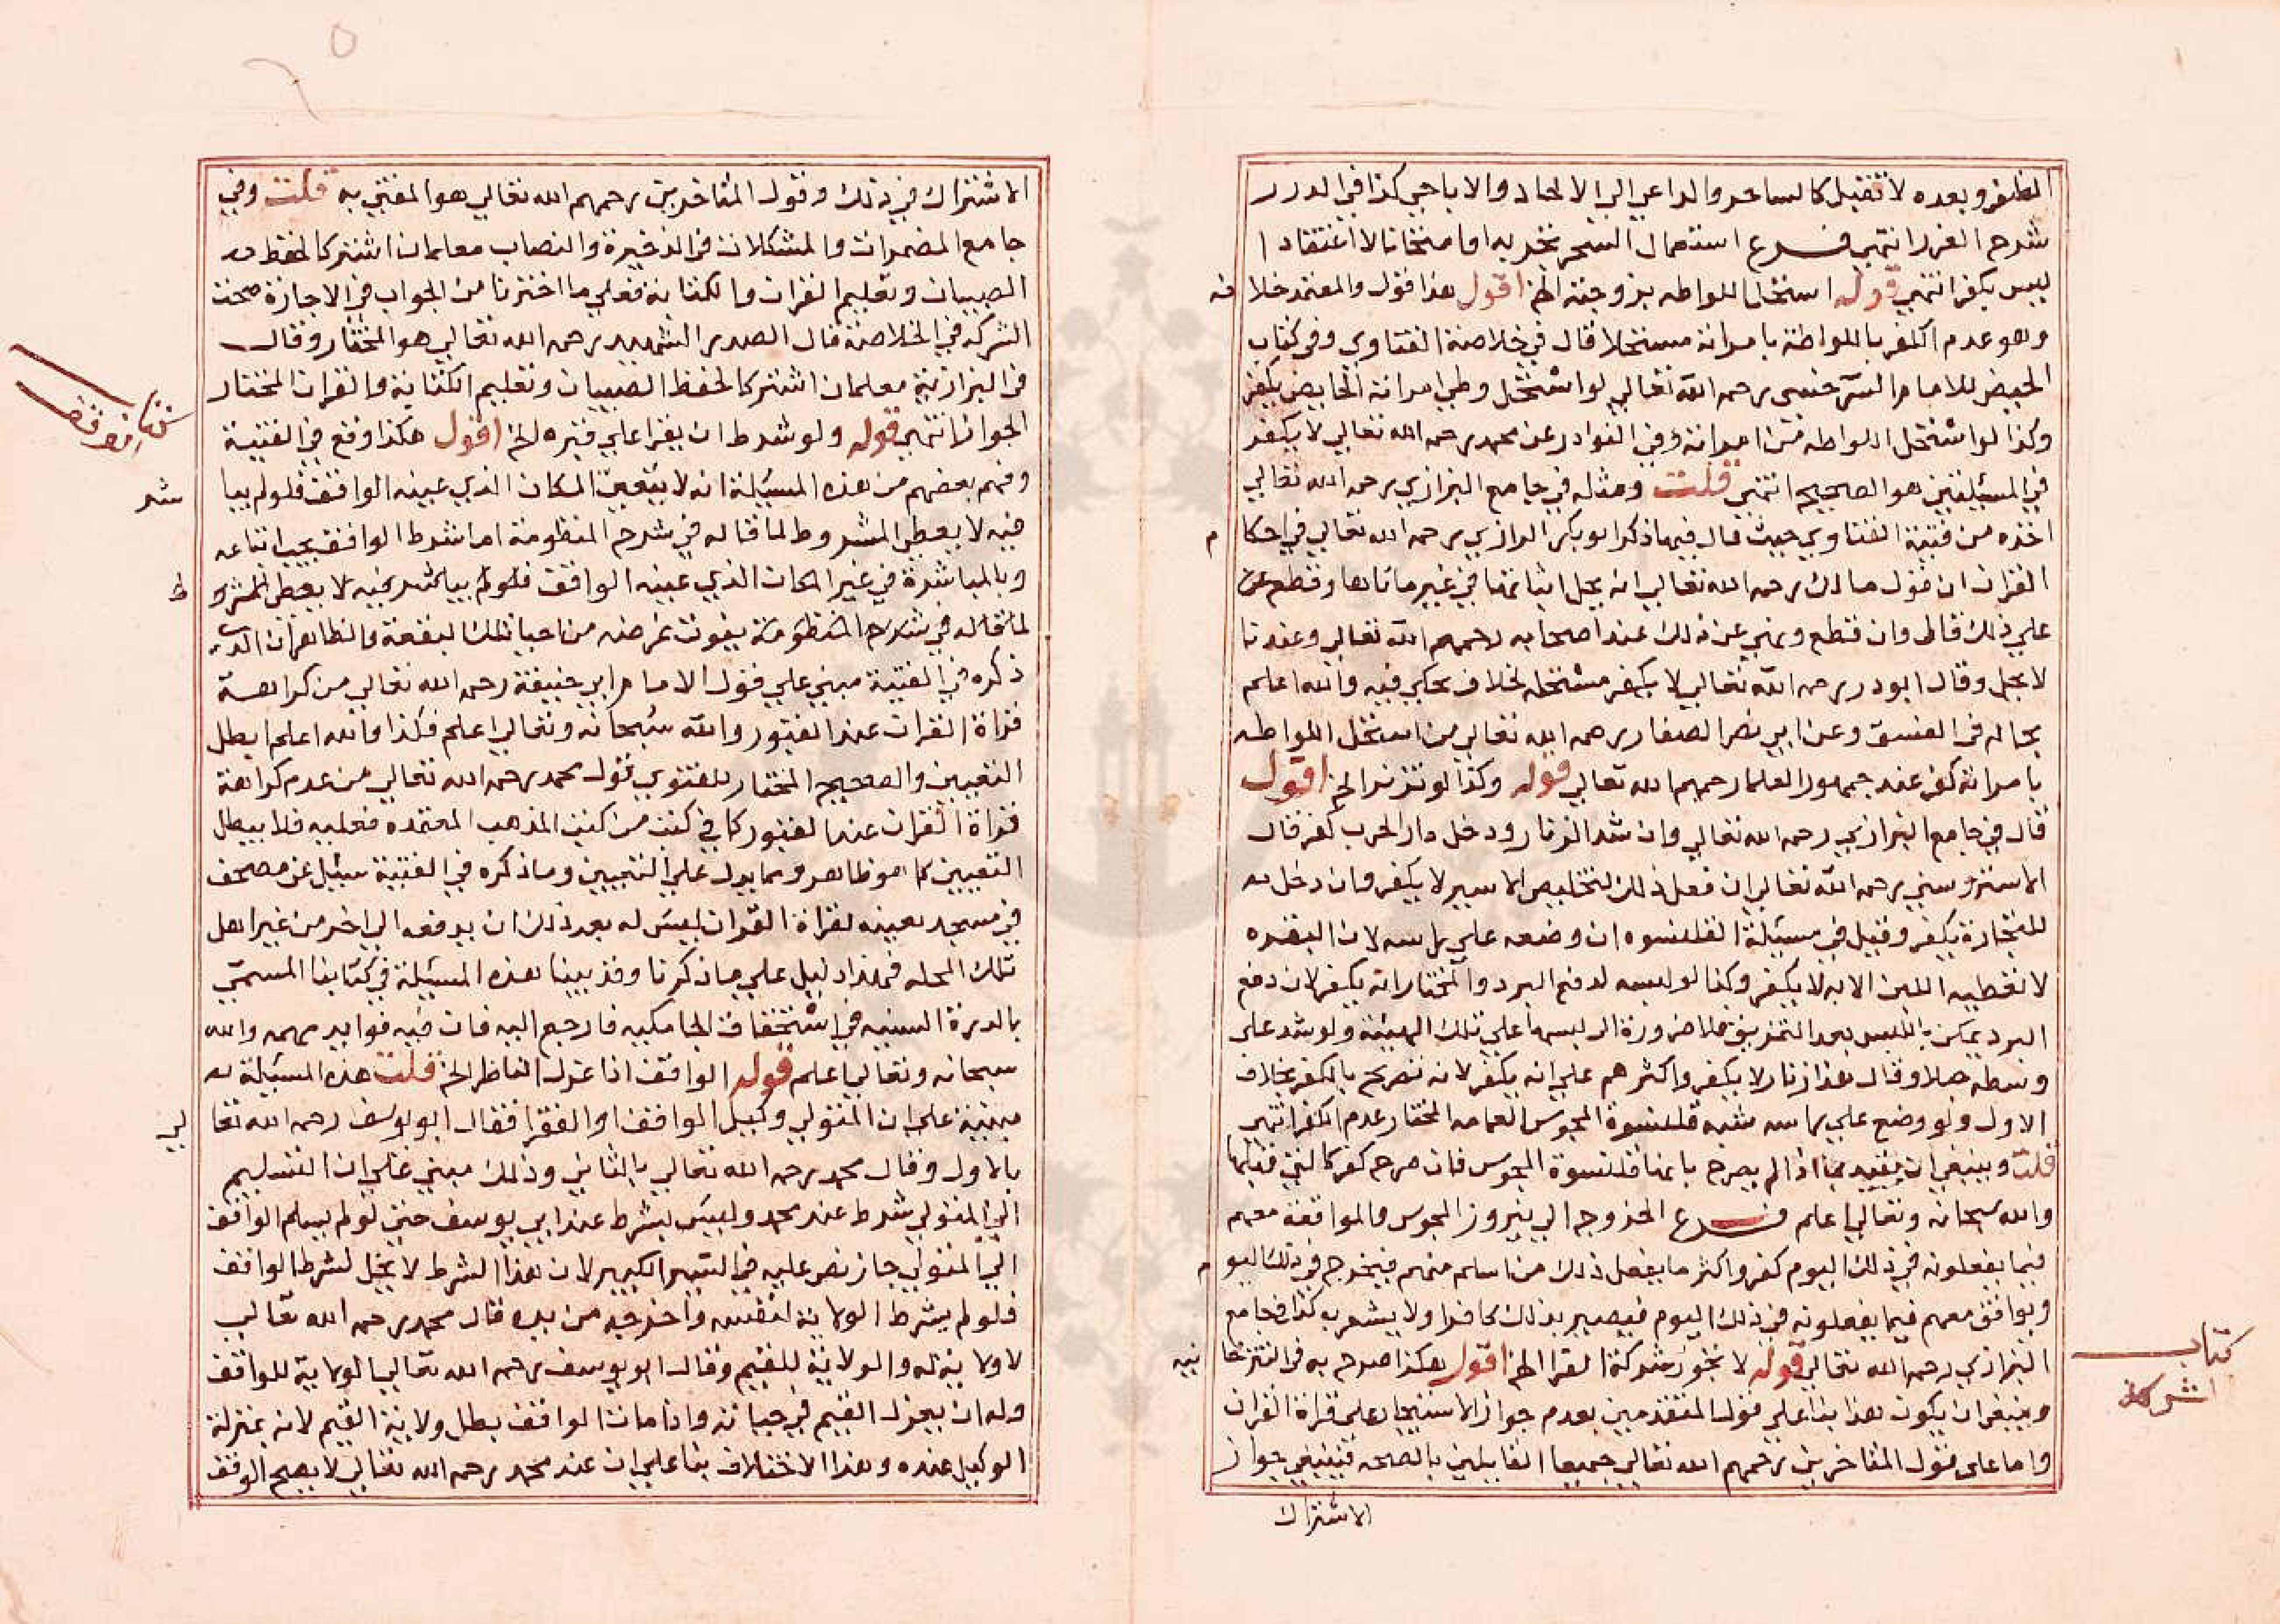 الظفر وبعده لا تقبل كالساحر والداعي الي الالحاد والاباحي كذا في الدرر
شرح الغرر انتهي فرع استعمال السحر بخربه او امتحانا لا اعتقادا
ليس بكفر انتهي قوله استحلال اللواطه بزوجته الخ اقول هذا قول والمعتمد خلا فه
وهو عدم الكفر باللواطة بامراته مستحلا قال في خلاصة الفتاوي وفي كتاب
الحيض للامام السرخسي رحمه الله تعالي لو استحل وطي امراته الحايض يكفر
وكذا لو استحل اللواطه من امراته وفي النوادر عن محمد رحمه الله تعالي لا يكفر
في المسئلتين هو الصحيح انتهي قلت ومثله في جامع البزازي رحمه الله تعالي
اخذه من قنية الفتاوي حيث قال فيما ذكر ابو بكر الرازي رحمه الله تعالي في احكا م
القران ان قول مالك رحمه الله تعالي انه يحل اتيانها في غير ماتاها وقطع
علي ذلك قال وان قطع ونهي عن ذلك عند اصحابه رحمهم الله تعالي وعندنا
لا يحل وقال ابو ذر رحمه الله تعالي لا يكفر مستحله لخلاف يحكي فيه والله اعلم
بحاله في الفسق وعن ابي نصر الصفار رحمه الله تعالي من استحل اللواطه
بامراته كفر عند جمهور العلما رحمهم الله تعالي قوله وكذا لو تزنر الخ اقول
قال في جامع البزازي رحمه الله تعالي وان شد الزنار ودخل دار الحرب كفر قال
الاستروسني رحمه الله تعالي ان فعل ذلك لتخليص الاسير لا يكفر وان دخل
للتجارة يكفر وقيل في مسئلة القلنسوه ان وضعه علي راسه لان البقره
لا تعطيه اللبن الا به لا يكفر وكذا لو لبسه لدفع البرد والمختار انه يكفر لان دفع
البرد يمكن باللبس بعد التمزيق فلا ضرورة الي لبسها علي تلك الهيئة ولو شد علي
وسطه حبلا وقال هذا زنار لا يكفر واكثرهم علي انه يكفر لانه تصريح بالكفر بخلاف
الاول ولو وضع علي راسه شبه قلنسوة المجوس العامه المختار عدم الكفر انتهي
قلت وينبغي ان يقيد بما اذا لم يصرح بانها قلنسوة المجوس فان صرح كفر كالتي قبلها
والله سبحانه وتعالي اعلم فرع الخروج الي نيروز المجوس والموافقة معهم
فيما يفعلونه في ذلك اليوم كفر واكثر ما يفعل ذلك من اسلم منهم فيخرج في ذلك اليو م
ويوافق معهم فيما يفعلونه في ذلك اليوم فيصير بذلك كافرا ولا يشعر به كذا في جامع
البزازي رحمه الله تعالي قوله لا تجوز شركة القرا الخ اقول هكذا صرح به في التترخا نيه
وينبغي ان يكون هذا بنا علي قول المتقدمين بعدم جواز الاستيجار علي قراة القران
واما علي قول المتاخرين رحمهم الله تعالي جميعا القايلين بالصحه فينبغي جواز
الاشتراك
كتاب
الشركة
الاشتراك في ذلك وقول المتاخرين رحمهم الله تعالي هو المفتي به قلت وفي
جامع المضمرات والمشكلات في الذخيرة والنصاب معلمان اشتركا لحفظ
الصبيان وتعليم القران والكتابة فعلي ما اخترنا من الجواب في الاجازة صحت
الشركه في الخلاصة قال الصدر الشهيد رحمه الله تعالي هو المختار وقال
في البزازية معلمان اشتركا لحفظ الصبيان وتعليم الكتابة والقران المختار
الجواز انتهي قوله ولو شرط ان يقرا علي قبره الخ اقول هكذا وقع في القنية
وفهم بعضهم من هذه المسئلة انه لا يتعين المكان الذي عينه الواقف فلو لم يبا شر
فيه لا يعطي المشروط لما قاله في شرح المنظومة اما شرط الواقف يجب اتباعه
وبالمباشرة في غير المكان الذي عينه الواقف فلو لم يباشر فيه لا يعطي المشرو ط
لما قاله في شرح المنظومة يفوت غرضه من احيا تلك البقعة والظاهر ان الذي
ذكره في القنية مبني علي قول الامام ابي حنيفة رحمه الله تعالي من كراهة
قراة القران عند القبور والله سبحانه وتعالي اعلم فكذا والله اعلم ابطل
التعيين والصحيح المختار للفتوي قول محمد رحمه الله تعالي من عدم كراهة
قراة القران عند القبور كما في كتب من كتب المذهب المعتمده فعليه فلا يبطل
التعيين كما هو ظاهر ومما يدل علي التعيين وما ذكره في القنية سئل عن مصحف
في مسجد بعينه لقراة القران ليس له بعد ذلك ان يدفعه الي اخر من غير اهل
تلك المحله فهذا دليل علي ما ذكرنا وقد بينا هذه المسئلة في كتابنا المسمي
بالدرة السنيه في استحقاق الجامكيه فارجع اليه فان فيه فوايد مهمه والله
سبحانه وتعالي اعلم قوله الواقف اذا عزل الناظر الخ قلت هذه المسئلة
مبنية علي ان المتولي وكيل الواقف او الفقرا فقال ابو يوسف رحمه الله تعا لي
بالاول وقال محمد رحمه الله تعالي بالثاني وذلك مبني علي ان التسليم
الي المتولي شرط عند محمد وليس بشرط عند ابي يوسف حتي لو لم يسلم الواقف
الي المتولي جاز نص عليه في السير الكبير لان هذا الشرط لا يخل لشرط الواقف
فلو لم يشرط الولاية لنفسه واخرجه من يده قال محمد رحمه الله تعالي
لا ولاية له والولاية للقيم وقال ابو يوسف رحمه الله تعالي الولاية للواقف
وله ان يعزل القيم في حياته واذا مات الواقف بطل ولاية القيم لانه بمنزلة
الوكيل عنده وهذا الاختلاف بنا علي ان عند محمد رحمه الله تعالي لا يصح الوقف
كتاب
الوقف